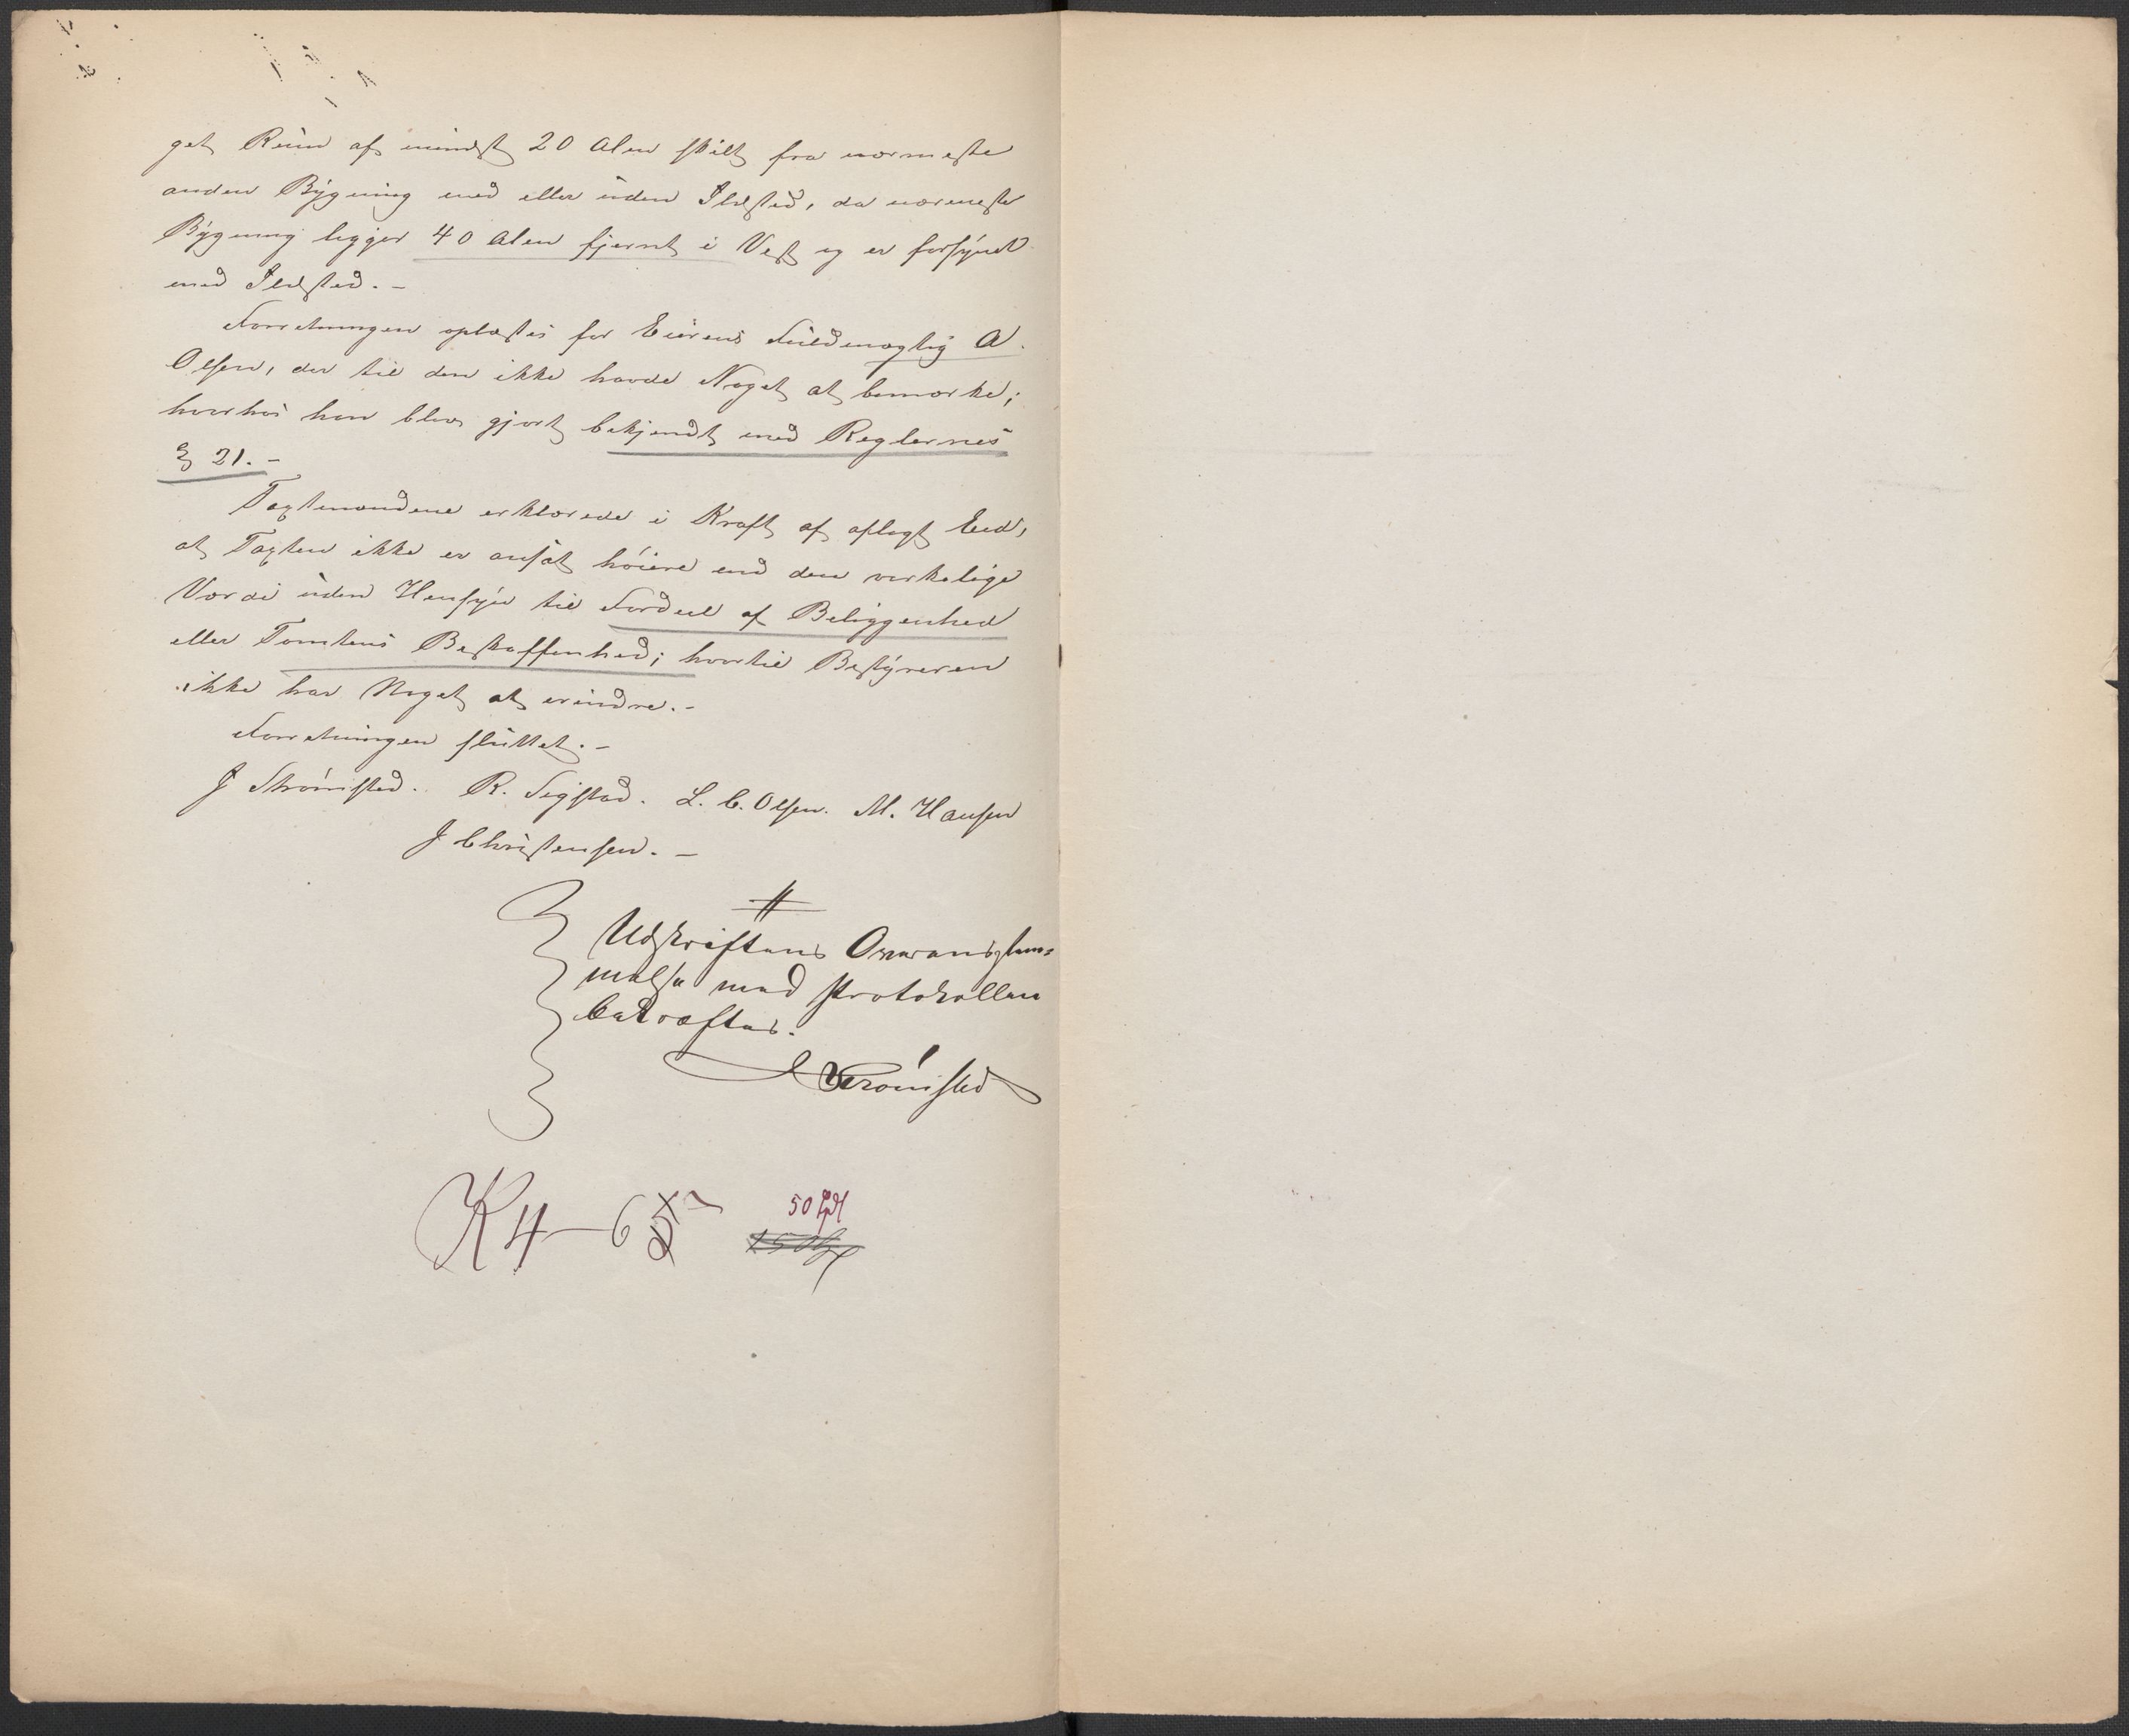 get Rum af mindst 20 Alen skilt fra nærmeste
anden Bygning med eller uden Ildsted, da nærmeste
Bygning ligger 40 Alen fjernt i Vest og er forsynet
med Ildsted. -
Forretningen oplæstes for Eierens Fuldmægtig A.
Olsen, der til den ikke havde Noget at bemærke;
hvorhos han blev gjort bekjendt med Reglernes
§ 21. -
Taxtmændene erklærede i Kraft af aflagt Eed,
at Taxten ikke er ansat høiere end den virkelige
Værdi uden Hensyn til Fordeel af Beliggenhed
eller Tomtens Beskaffenhed; hvortil Bestyreren
ikke har Noget at erindre. -
Forretningen sluttet. -
J Strømsted. R. Sigstad. L. C. Olsen. M. Hansen
J Christensen. -
Udskriftens Overensstem-
melse med Protokollen
bekræftes.
Strømsted
K 4 - 6
50